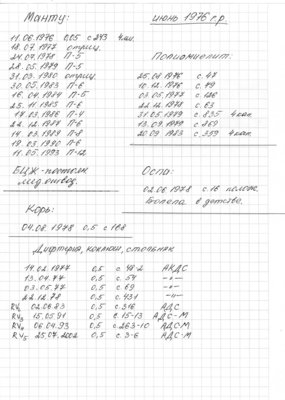 Манту:
июнь 1976 г.р
11.06.1976 0,05 с 243 4 кк
18.07.1977 отриц.
24.07.1978 П-5
28.05.1979 П-5
31.03.1980 отриц.
30.05.1983 П-6
16.04.1984 П-5
25.11.1985 П-6
17.03.1986 П-4
22.12.1987 П-6
14.03.1989 П-8
19.03.1990 П-6
11.05.1993 П-12
Полиомиелит:
25.08.1976 с.47
10.12.1976 с.49
03.05.1977 с.126
22.12.1978 с.63
31.05.1979 с.835 4 кап
13.09.1979 с.869
20.09.1983 с.399 4 кап.
БЦЖ - постоян
мед отвод.
Оспа:
02.06.1978 с 16 полож.
Болела в детстве.
Корь:
04.08.1978 0,5 с 168
Дифтерия, коклюш, столбняк
14.02.1977 0,5 с.48-2 АКДС
13.04.77 0,5 с.54 -"-
03.05.77 0,5 с.69 -"-
22.12.78 0,5 с.431 -"-
RV2 02.06.83 0,5 с.316 АДС
RV3 15.05.91 0,5 с.15-13 АДС-М
RV4 06.04.93 0,5 с.263-10 АДС-М
RV5 25.07.2002 0,5 с.3-6 АДС-М